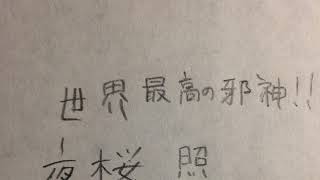 世界最高の邪神!!
夜桜 照